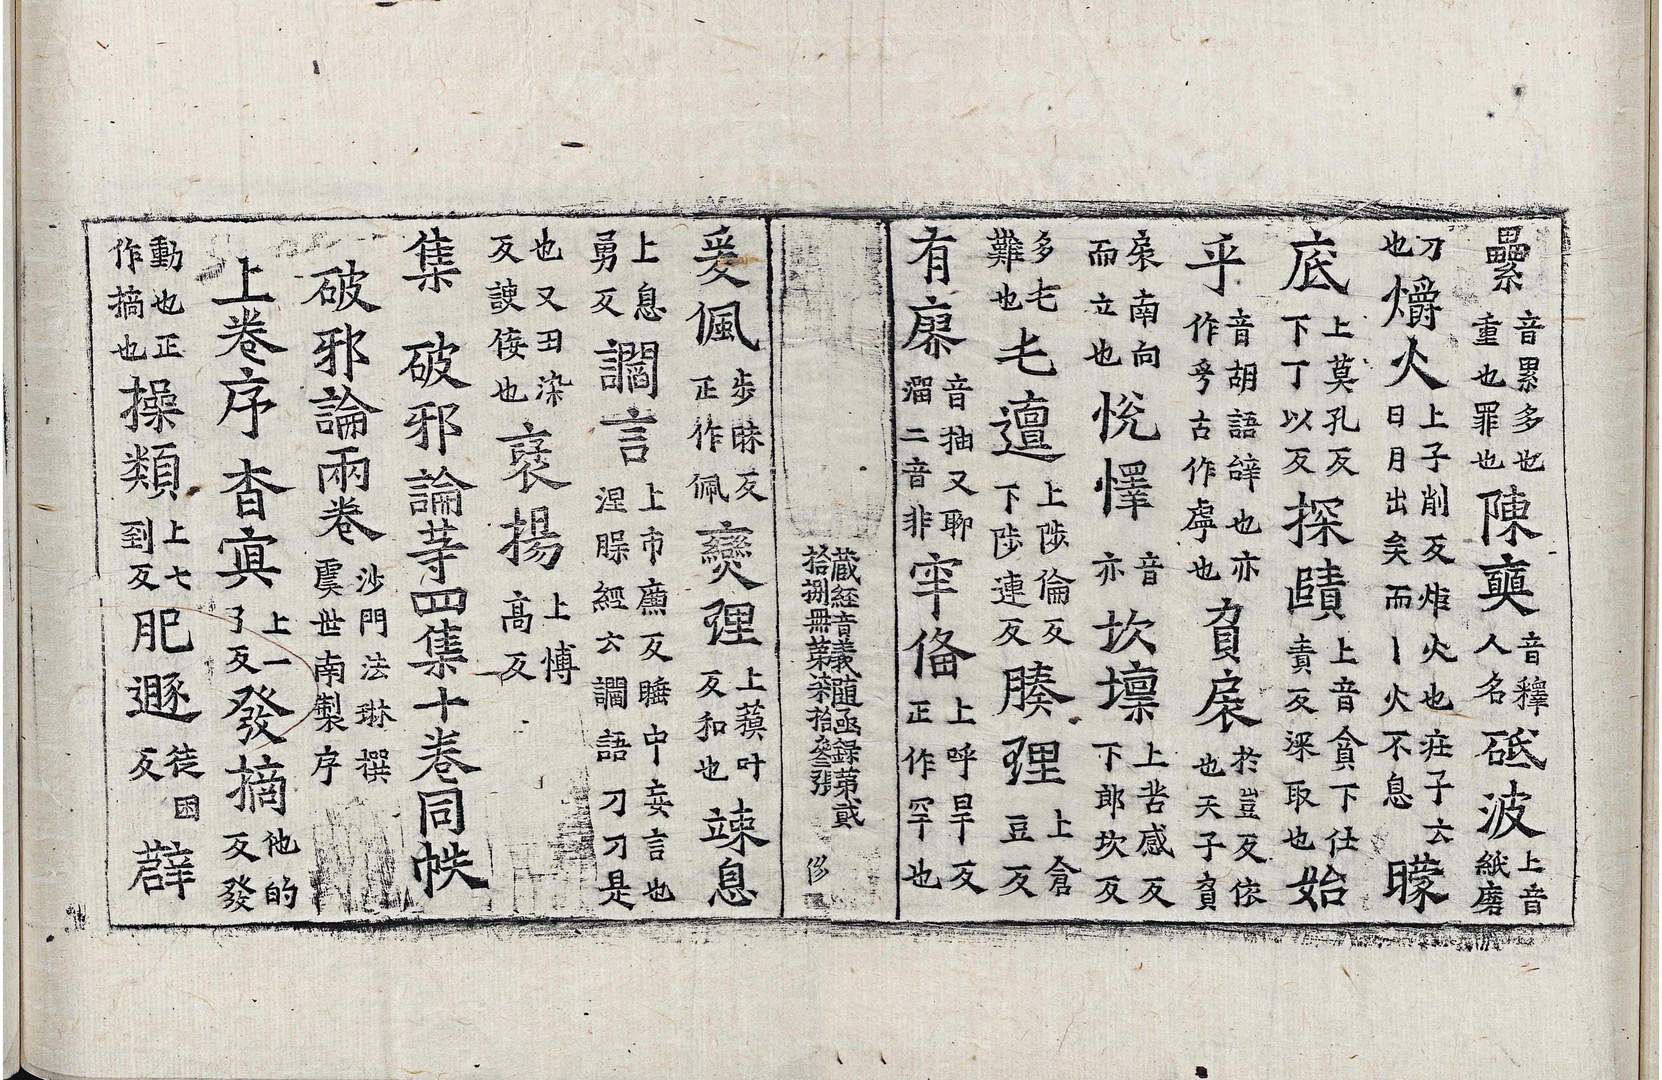 纍音累多也重也罪也陳奭音釋人名砥波上音紙磨
刀也爝火上子削反炬火也莊子云日月出矣而丨火不息矇
底上莫孔反下丁以反探賾上音貪下仕責反深取也始
乎音胡語辝也亦作乥古作虖也負扆於豈反依也天子負
扆南向而立也悅懌音亦坎壈上苦感反下郎坎反
多乇難也乇邅上陟倫反下陟連反腠理上倉豆反
有廖音抽又聊溜二音非罕俻上呼旱反正作罕也
藏經音義随函録第貳拾捌冊第柒拾叄張
爰佩步昧反正作佩燮理上蘓叶反和也竦息
上息勇反讇言上市廉反睡中妄言也涅槃經云讇語刀刀是
也又丑染反諛佞也襃揚上博高反
集 破邪論等四集十卷同帙
破邪論兩卷沙門法琳撰虞世南製序
上卷序杳㝠上一了反發擿上他的反發
動也正作擿也操類上七到反肥遯徒困反薜